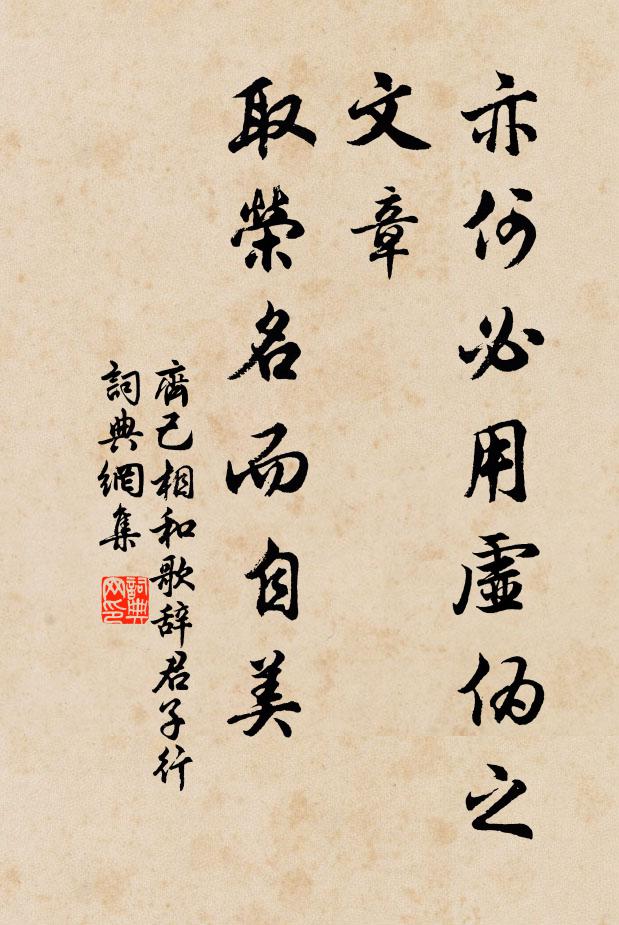 亦何必用虛偽之
文章
取榮名而自美
齊己相和歌辞君子行
詞典網集
詞典网印